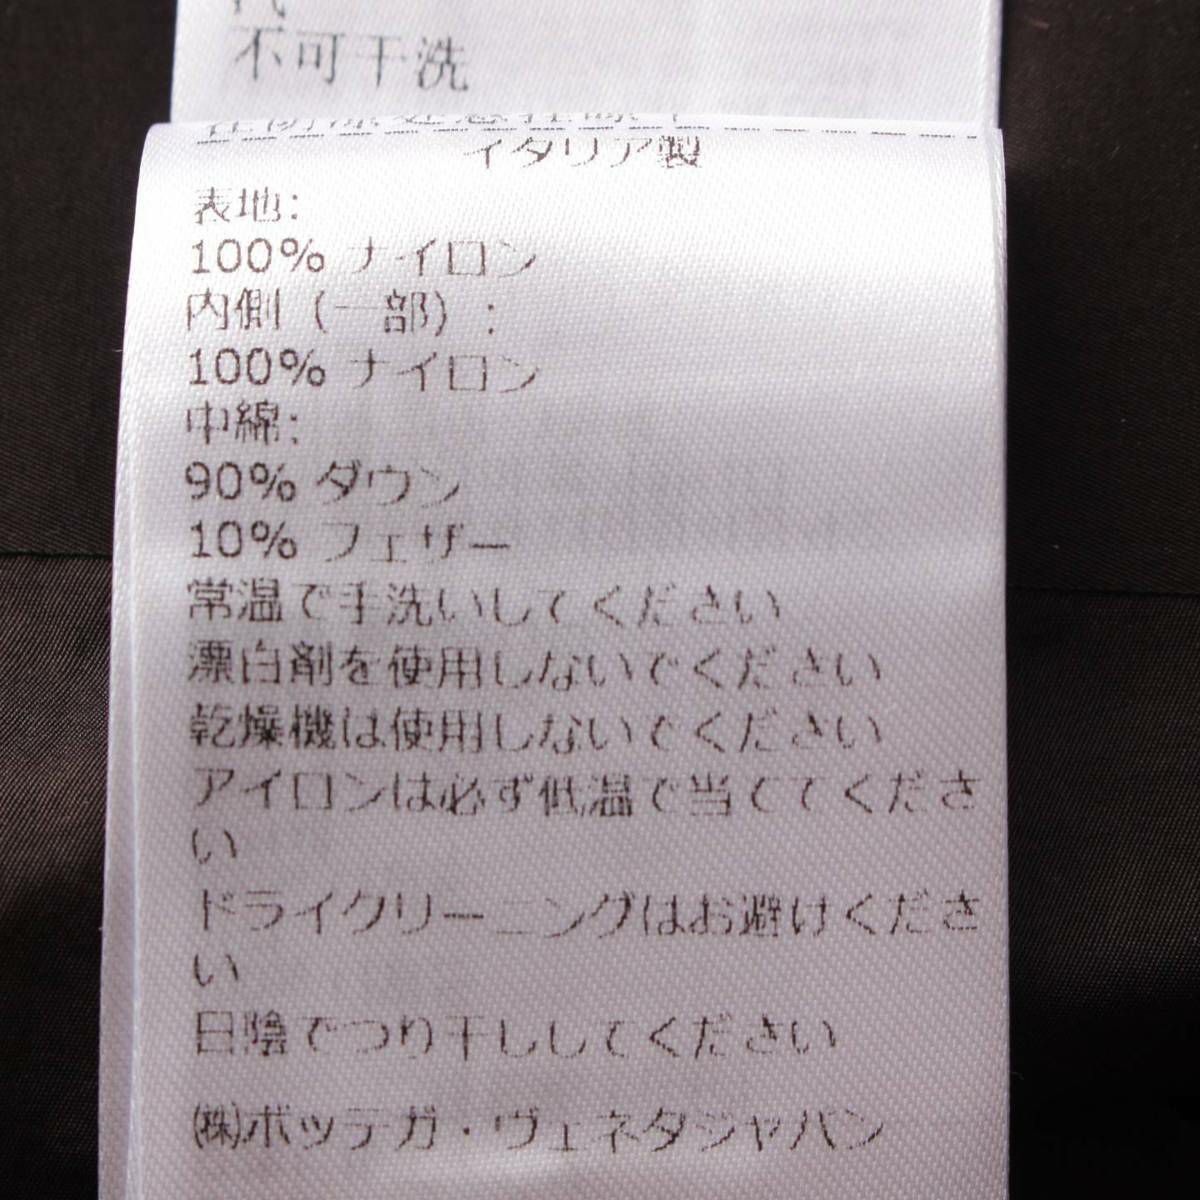 不可干洗
イタリア製
表地:
100% ナイロン
内側 (一部) :
100% ナイロン
中綿:
90% ダウン
10% フェザー
常温で手洗いしてください
漂白剤を使用しないでください
乾燥機は使用しないでください
アイロンは必ず低温で当ててくださ
い
ドライクリーニングはお避けくださ
い
日陰でつり干ししてください
㈱ボッテガ・ヴェネタジャパン